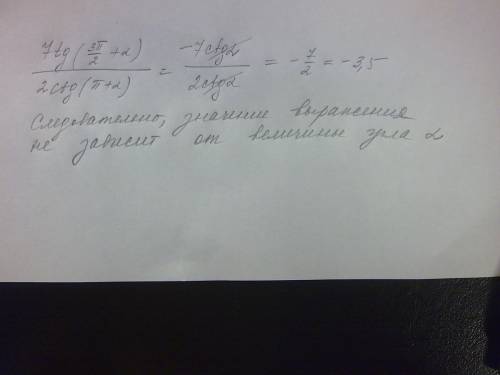 7tg(3π/2 + α) / 2ctg(π + α) = -7ctgα / 2ctgα = - 7/2 = -3,5
Следовательно, значение выражения
не зависит от величины угла α